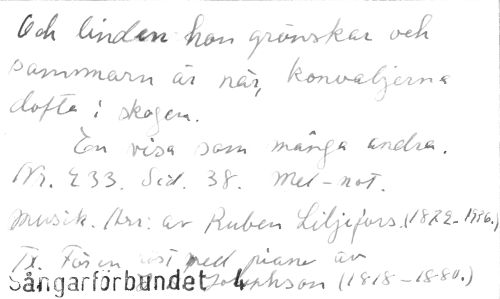 Och linden hon grönskar och
sommarn är när, konvaljerna
dofta i skogen.
En visa som många andra.
Nr. 233. Sid. 38. Mel-not.
Musik. Arr: av Ruben Liljefors. (1872-1936.)
Tx. För en röst med piano av
Josephson (1818-1880.)
Sångarförbundet 4